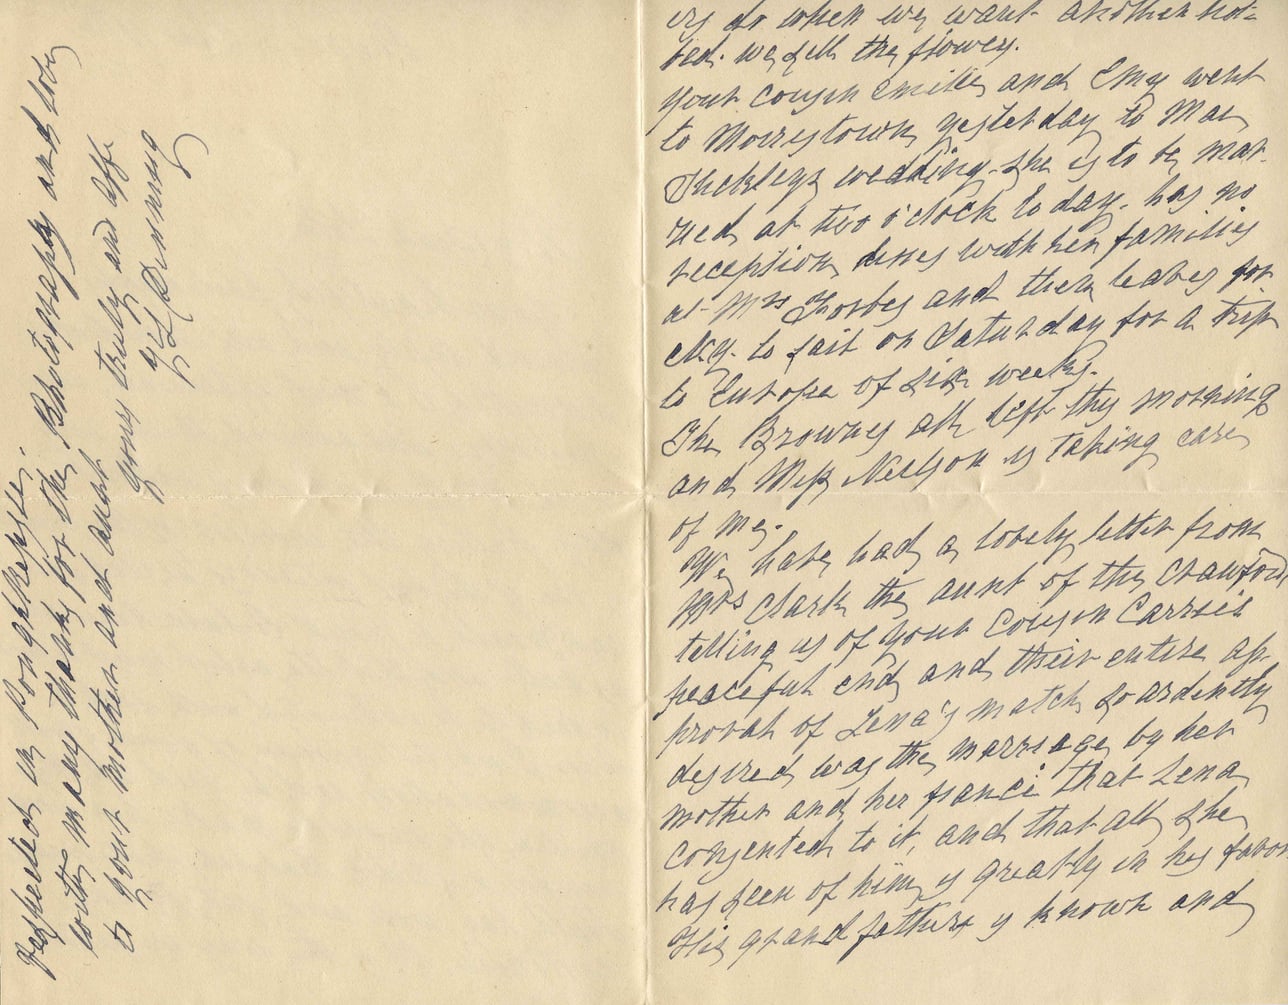 do when we want another hot-
bed. we sell the flowers.
Your cousin Emilie and Emy went
to Morristown yesterday to May
wedding. She is to be mar-
ried at two o'clock to day. has no
reception, dines with her families
at Mrs Forbes and then leaves for
to sail on Saturday for a trip
to Europe of six weeks.
The Browns all left this morning
and Miss Neilson is taking care
of me.
We have had a lovely letter from
Mrs Clark the aunt of the Crawford
telling us of your Cousin Carrie's
peaceful end and their entire ap-
proval of Lena's match so ardently
desired was the marriage by her
mother and her fiancé that Lena
consented to it, and that all she
has seen of him is greatly in his favor
His grandfather is known and
respected in Poughkeepsie.
with many thanks for the Photographs and love
to your Mother and aunt
yours truly and aff.